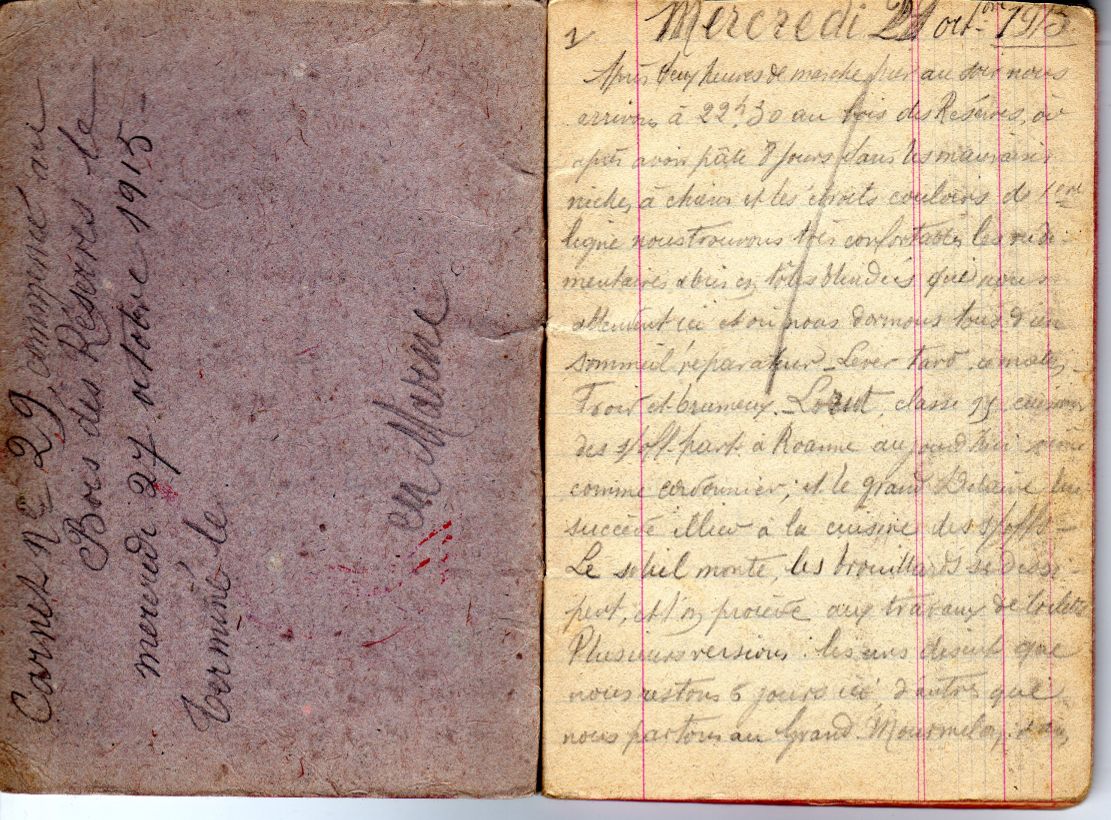 Carnet n° 29 commencé au
Bois des Réserves le
mercredi 27 octobre 1915 -
Terminé le
en Marne
1
Mercredi oct. 1915
Après deux heures de marche hier au soir nous
arrivons à 22h30 au bois des Réserves, où
après avoir pâti 8 jours dans les mauvaises
niches à chiens et les étroits couloirs de 1ère
ligne nous trouvons très confortables les rudi-
mentaires abris en tôles blindées qui nous
attendent ici et où nous dormons tous d'un
sommeil réparateur. Lever tard
Froid et brumeux. classe 95 cuisinier
des s/off. part à Roanne aujourd'hui même
comme cordonnier; et le grand Delaire lui
succède illico à la cuisine des s/offs -
Le soleil monte, les brouillards se dissi-
pent, et l'on procède aux travaux de toilette
Plusieurs versions: les uns disent que
nous restons 6 jours ici d'autres que
nous partons au Grand Mourmelon,